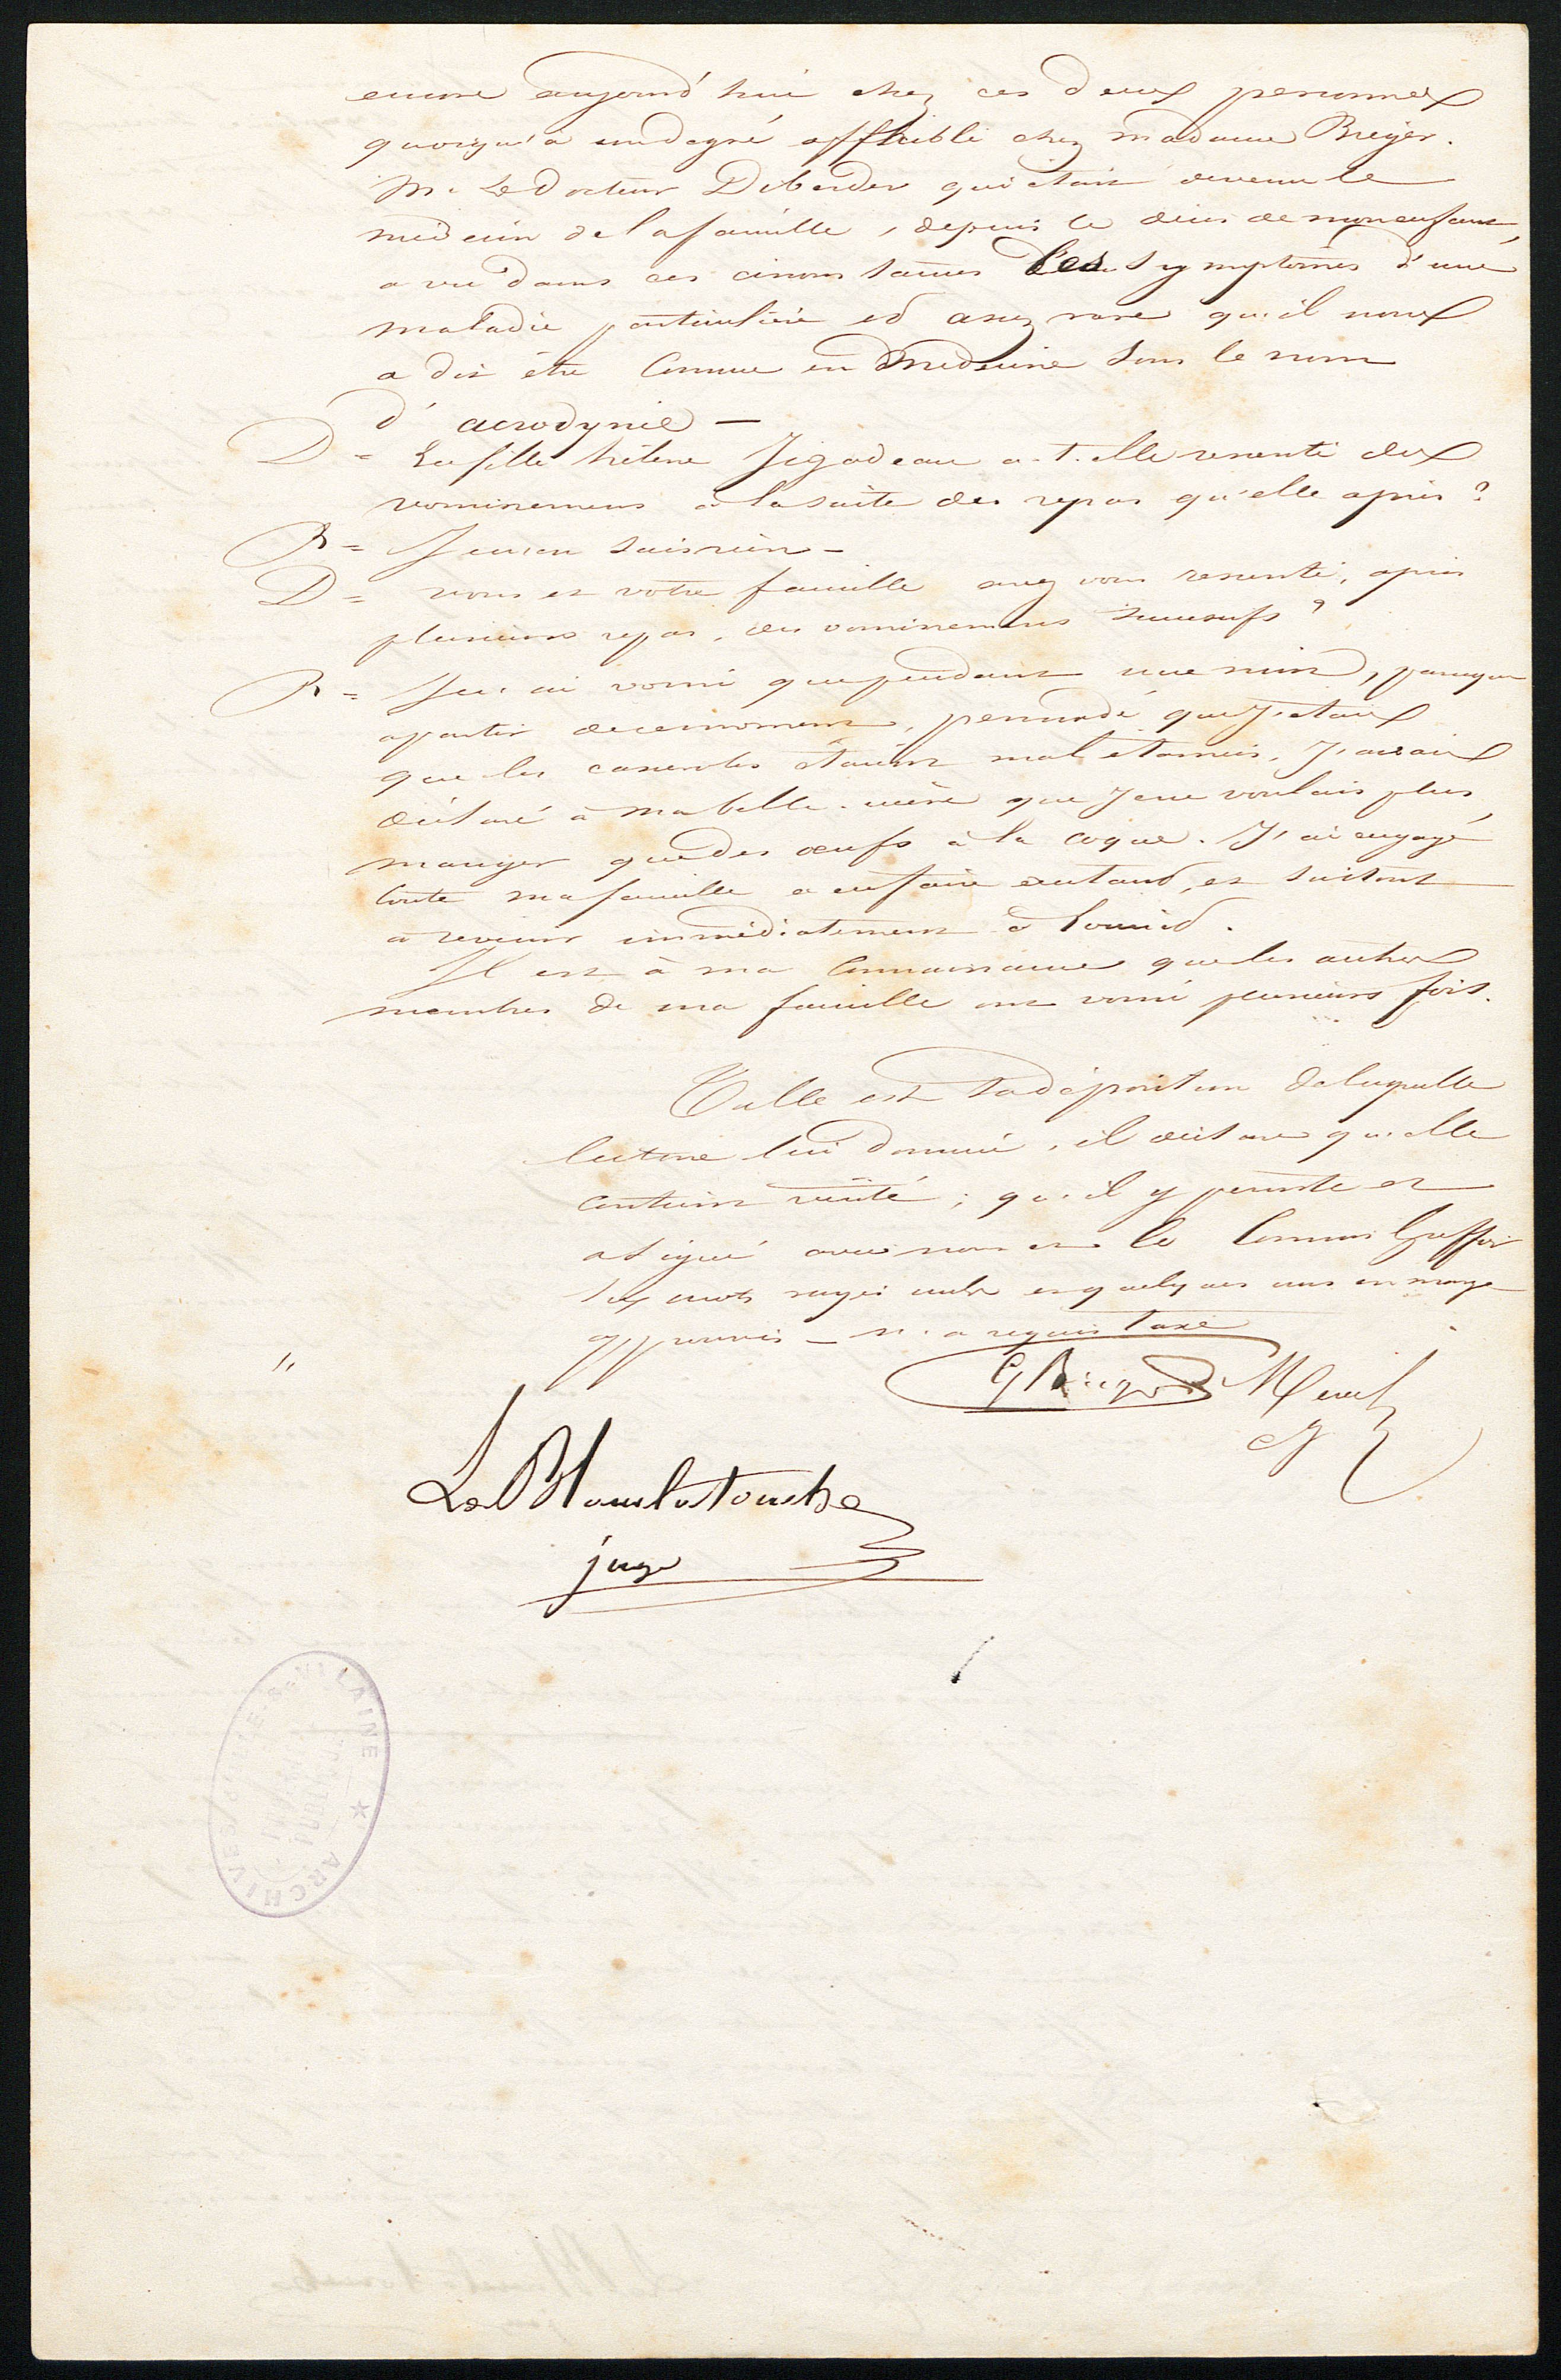 encore aujourd'hui chez ces deux personnes
quoiqu'à un degré affaibli chez madame Breger.
Mr Le Docteur Deberder qui était devenu le
médecin de la famille, depuis le décès de mon enfant,
a vu dans ces circonstances les symptômes d'une
maladie particulière et assez rare qu'il nous
a dit être connue en médecine sous le nom
d'acrodynie —
D = La fille hélène Jégadeau a-t-elle ressenti des
vomissemens à la suite des repas qu'elle a pris ?
R = Je n'en sais rien —
D = vous et votre famille avez vous ressenti, après
plusieurs repas, des vomissemens successifs ?
R = Je n'ai vomi que pendant une nuit, parceque
apartir de ce moment, persuadé que j'étais
que les casseroles étaient mal étamées, J'avais
déclaré à ma belle-mère que Je ne voulais plus
manger que des œufs à la coque. J'ai engagé
toute ma famille a en faire autant, et surtout
a revenir immédiatement à
Il est à ma connaissance que les autres
membres de ma famille ont vomi plusieurs fois.
Telle est sa déposition de laquelle
lecture lui donnée, il déclare qu'elle
contient vérité ; qu'il y persiste et
a signé avec nous et le Commis Greffier
Six mots rayés nuls et quelques uns en marge
approuvés — n'a requis taxe
"
Le Blanc latouche
juge
ARCHIVES D'ILLE-&-VILAINE